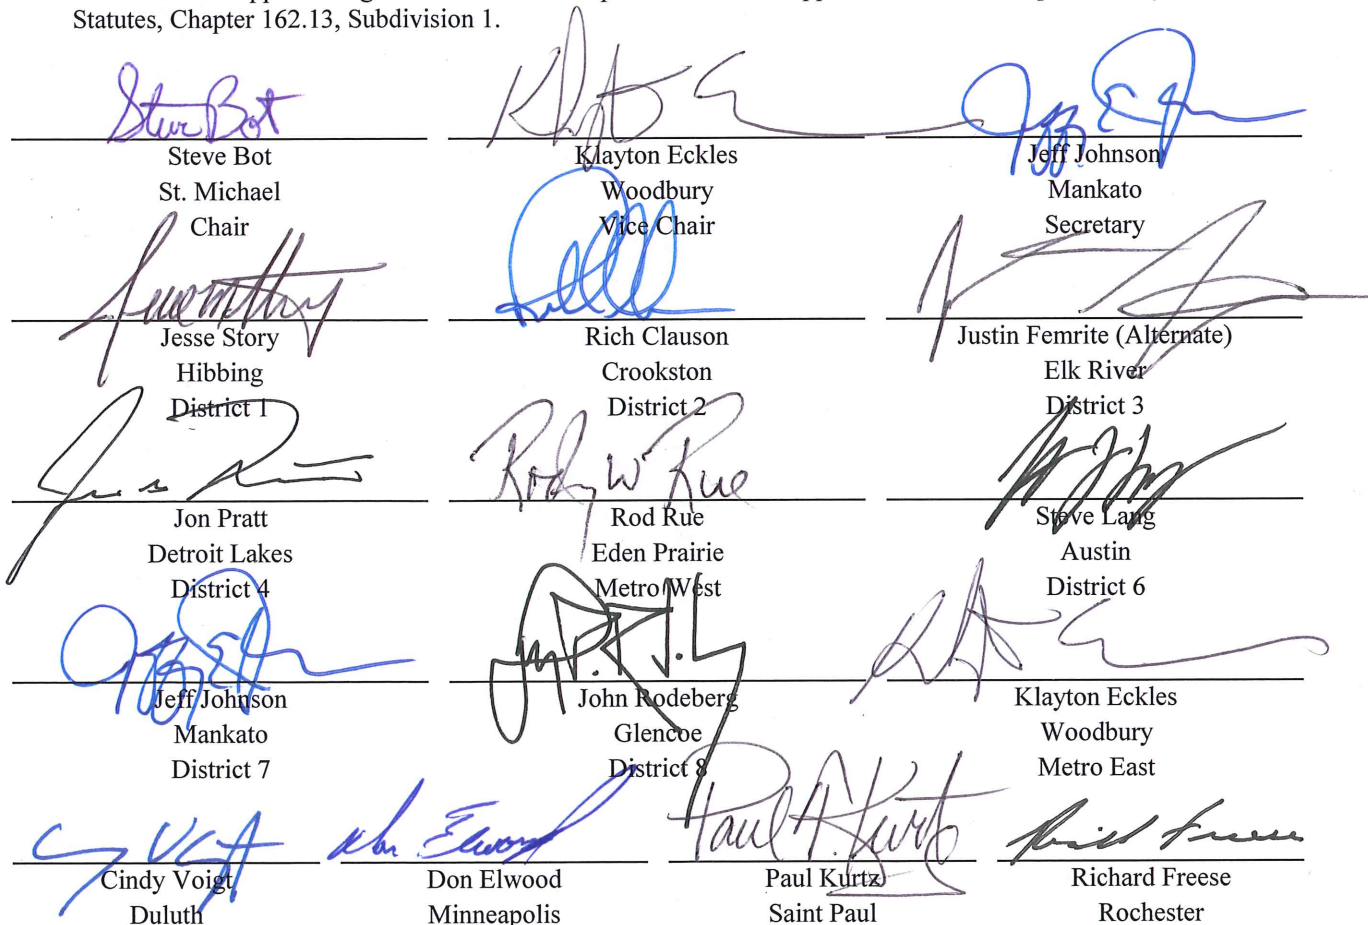 Statutes, Chapter 162.13, Subdivision 1.
Steve Bot
Steve Bot
St. Michael
Chair
Klayton Eckles
Woodbury
Vice Chair
Jeff Johnson
Mankato
Secretary
Jesse Story
Hibbing
District 1
Rich Clauson
Crookston
District 2
Justin Femrite (Alternate)
Elk River
District 3
Jon Pratt
Detroit Lakes
District 4
Rod W Rue
Rod Rue
Eden Prairie
Metro West
Steve Lang
Austin
District 6
Jeff Johnson
Mankato
District 7
John Rodeberg
Glencoe
District 8
Klayton Eckles
Woodbury
Metro East
Cindy Voigt
Duluth
Don Elwood
Don Elwood
Minneapolis
Paul T. Kurtz
Paul Kurtz
Saint Paul
Richard Freese
Rochester